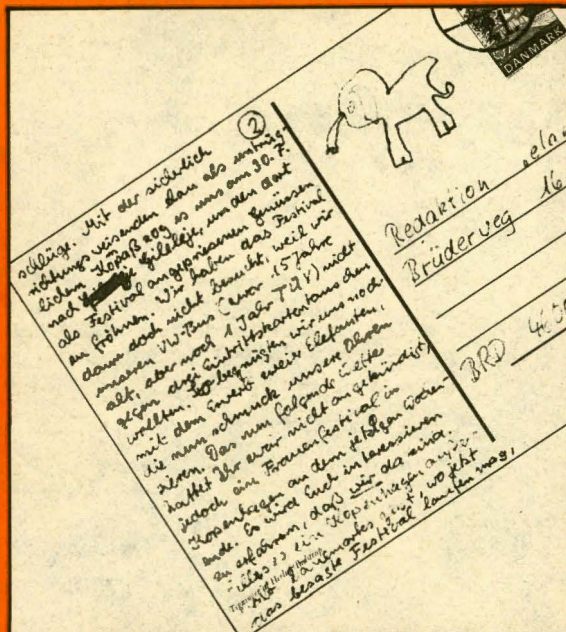 ②
schlüge. Mit der sicherlich
richtungsweisenden elan als untrüg-
lichem Kopaß zog es uns am 30.7.
nach Gileleje, um den dort
als Festival angepriesenen Genüssen
zu fröhnen. Wir haben das Festival
dann doch nicht besucht, weil wir
unseren VW-Bus (zwar 15 Jahre
alt, aber noch 1 Jahr TÜV) nicht
gegen drei Eintrittskarten tauschen
wollten. So begnügten wir uns noch
mit dem Erwerb zweier Elefanten,
die nun schmuck unsere Ohren
zieren. Das nun folgende Wetter
hattet Ihr zwar nicht angekündigt,
jedoch ein Frauenfestival in
Kopenhagen an dem jetzigen Wochen-
ende. Es wird Euch interessieren
zu erfahren, daß wir da sind.
es ein Kopenhagen
Dänemarks gibt, wo jetzt
das besagte Festival laufen mag,
DANMARK
Redaktion elan
Brüderweg 16
BRD